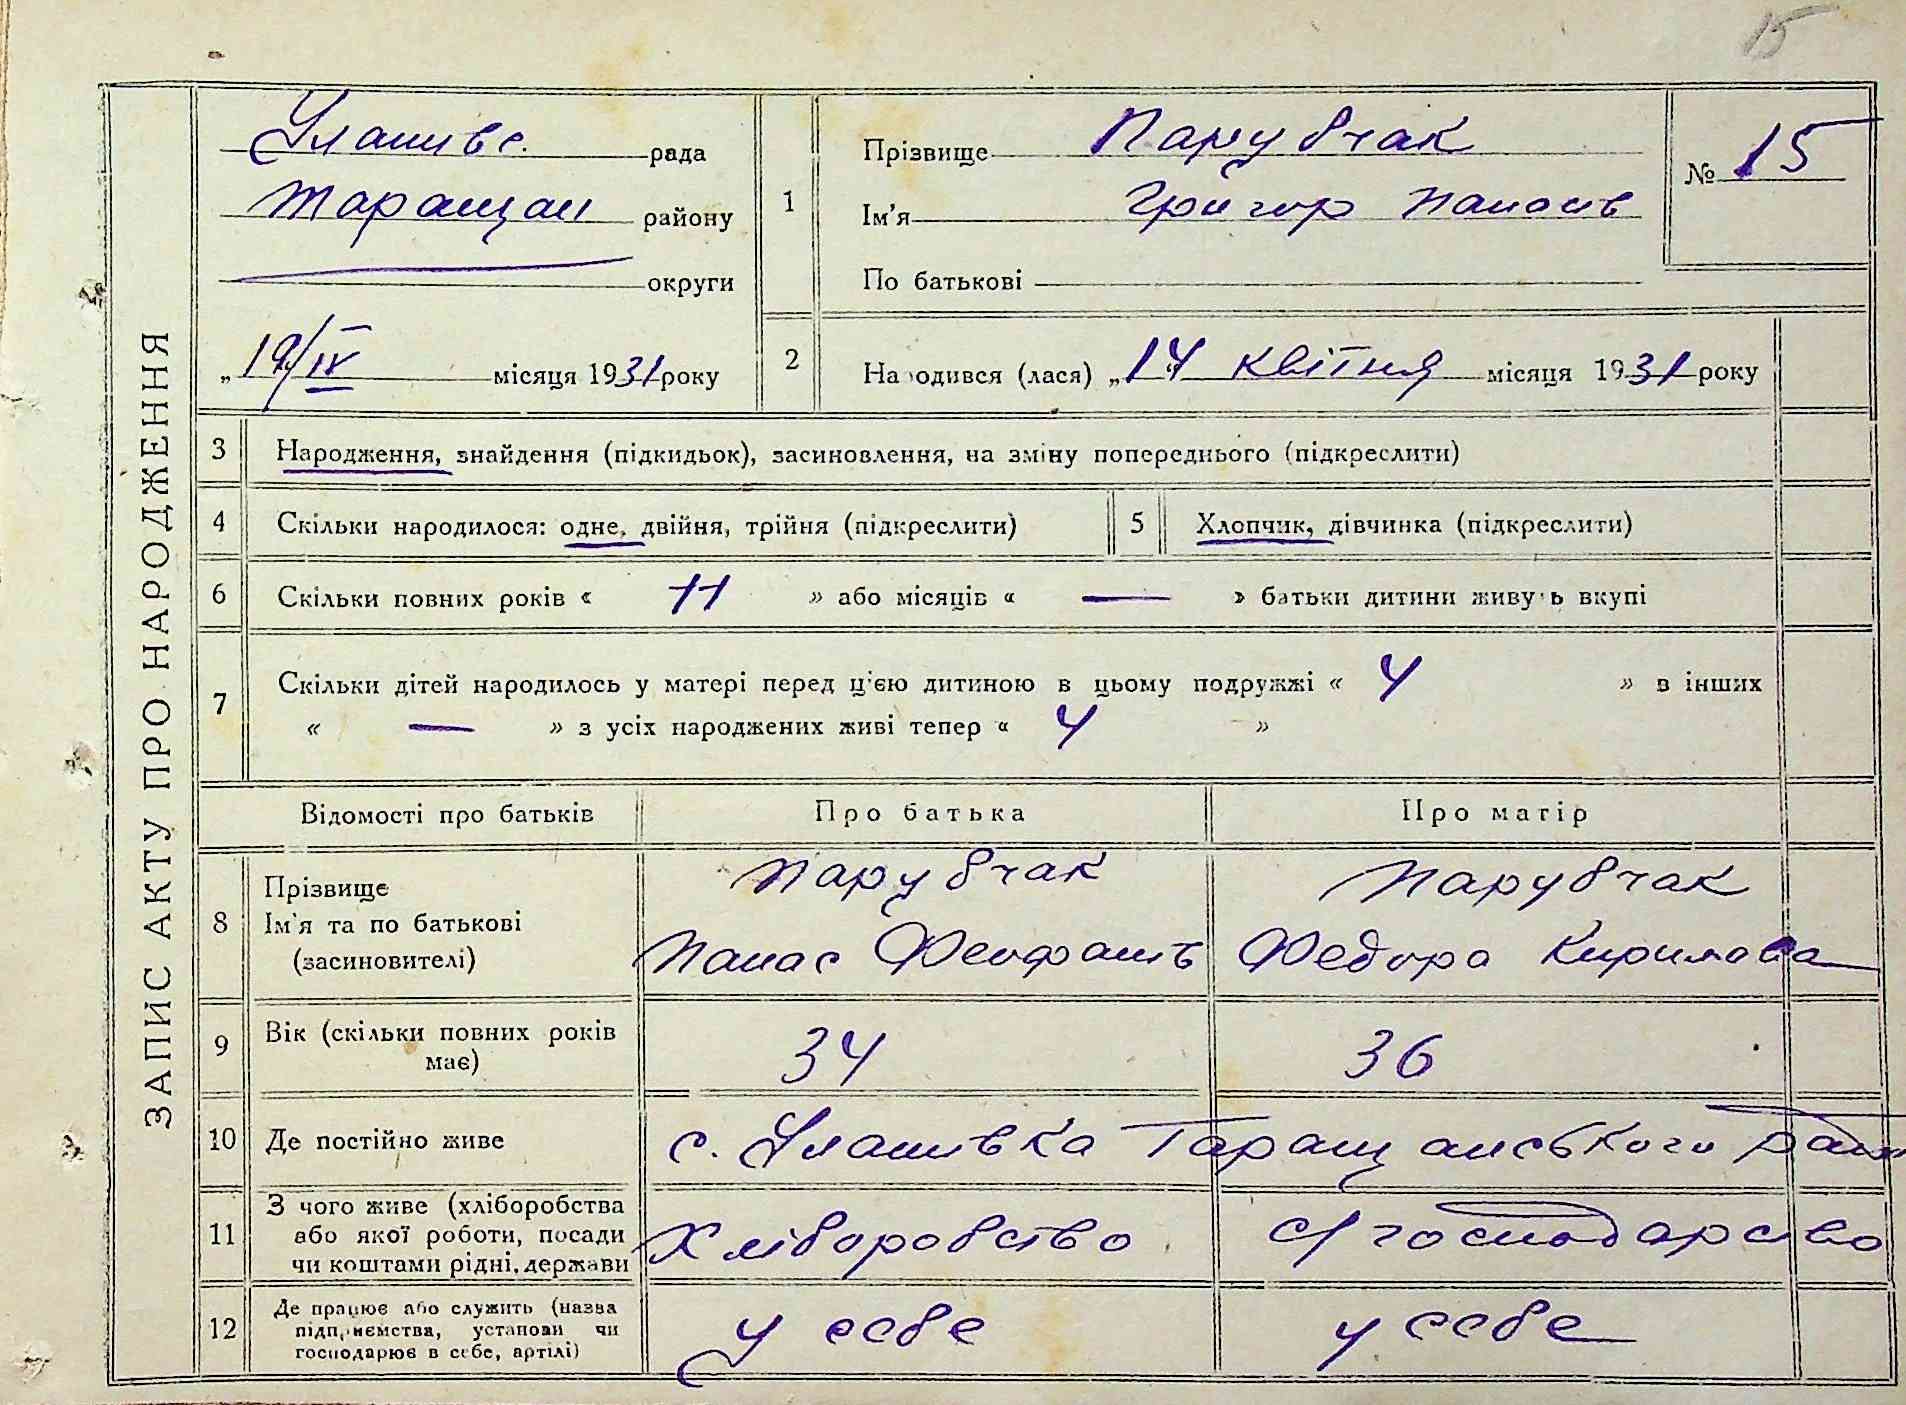 15
ЗАПИС АКТУ ПРО НАРОДЖЕННЯ
Улашивс. рада
Таращан району
округи
„19/IV місяця 1931 року
1
Прізвище Парубчак
Ім'я Григор Панасів
По батькові
№ 15
2
Народився (лася) „14" квітня місяця 1931 року
3 Народження, знайдення (підкидьок), засиновлення, на зміну попереднього (підкреслити)
4 Скільки народилося: одне, двійня, трійня (підкреслити) 5 Хлопчик, дівчинка (підкреслити)
6 Скільки повних років « 11 » або місяців « — » батьки дитини живуть вкупі
7 Скільки дітей народилось у матері перед ц'єю дитиною в цьому подружжі « 4 » в інших
« — » з усіх народжених живі тепер « 4 »
Відомості про батьків Про батька Про матір
8 Прізвище Парубчак Парубчак
Ім'я та по батькові Панас Федора Кирилова
(засиновителі)
9 Вік (скільки повних років має) 34 36
10 Де постійно живе с. Улашивка Таращанського
11 З чого живе (хліборобства або якої роботи, посади чи коштами рідні, держави Хліборобство с/господарство
12 Де працює або служить (назва підприємства, установи чи господарює в себе, артілі) у себе у себе